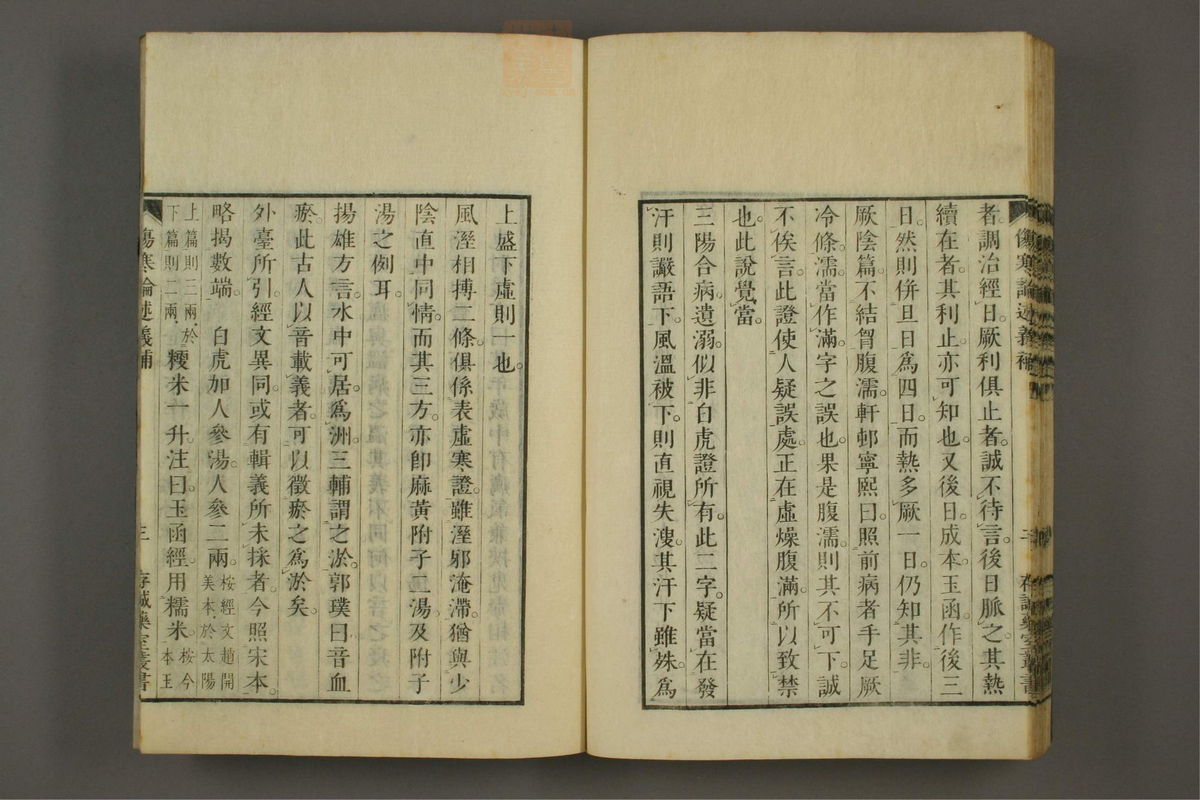 者。調治經日。厥利俱止者。誠不待言。後日脈之。其熱
續在者。其利止。亦可知也。又後日。成本玉函。作後三
日。然則併旦日爲四日。而熱多厥一日。仍知其非。
厥陰篇。不結胷腹濡。軒邨寧熙曰。照前病者手足厥
冷條。濡當作滿。字之誤也。果是腹濡。則其不可下。誠
不俟言。此證使人疑誤處。正在虛燥腹滿。所以致禁
也。此說覺當。
三陽合病。遺溺。似非白虎證所有。此二字。疑當在發
汗則讝語下。風溫被下。則直視失溲。其汗下雖殊。爲
傷寒論述義補
二
存誠藥室叢書
上盛下虛則一也。
風溼相搏二條。俱係表虛寒證。雖溼邪淹滯。猶與少
陰直中同情。而其三方。亦卽麻黃附子二湯。及附子
湯之例耳。
揚雄方言。水中可居。爲洲。三輔謂之淤。郭璞曰。音血
瘀。此古人以音載義者。可以徵瘀之爲淤矣。
外臺所引。經文異同。或有輯義所未採者。今照宋本。
略揭數端。 白虎加人參湯。人參二兩。桉經文。趙開美本。於太陽
上篇則三兩。於下篇則二兩。 粳米一升。注曰。玉函經。用糯米。桉今本玉
傷寒論述義補
三
存誠藥室叢書